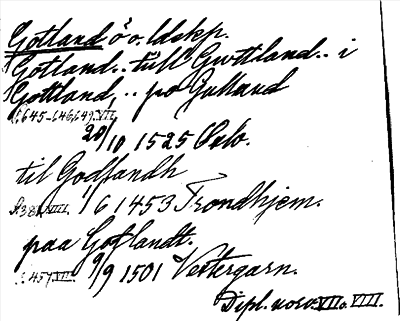 Gotland ö o. ldskp.
Gotland.. till Gwttland.. i
Gottland.. po Gulland
s. 645-646,649.VII,
20/10 1525 Oslo.
til Godlandh
VIII, 1/6 1453 Trondhjem.
paa Gotlandt.
s. 457.VII. 9/9 1501 Vestergarn.
Dipl. norv. VII o. VIII.